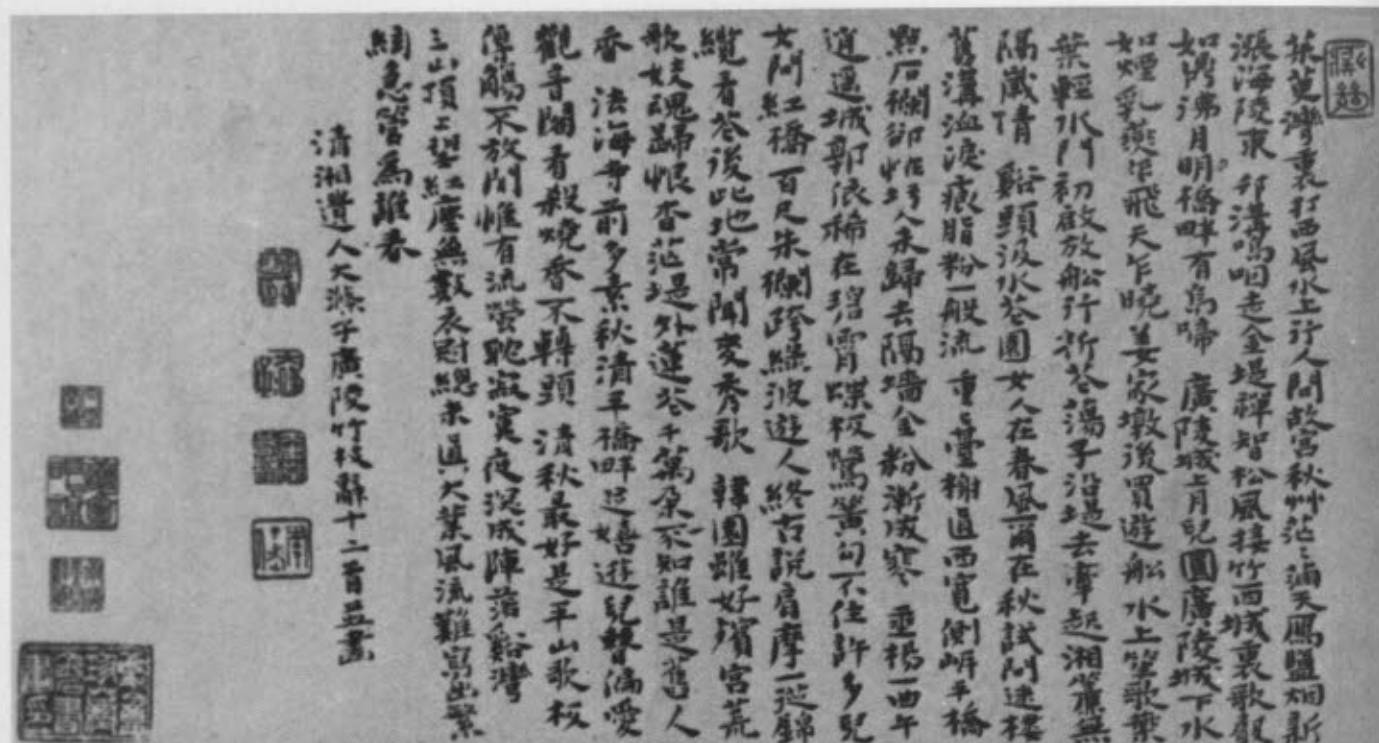 茱萸灣裏打西風水上行人問故宮秋艸茫〻滿天鴈鹽烟新
漲海陵東 邗溝嗚咽走金堤禪智松風接竹西城裏歌聲
如鼎沸月明橋畔有烏啼 廣陵城上月兒圓廣陵城下水
如煙乳燕乍飛天乍曉姜家墩後買遊船 水上笙歌葉
葉輕水門初啟放船行折花蕩子沿堤去牽起湘簾無
隔歲情 谿頭汲水花園女人在春風爾在秋試問迷樓
舊溝血淚痕脂粉一般流 重〻臺榭西寬側岸平橋
點石欄卻怪人未歸去隔墻金粉漸成寒 垂楊一曲午
逍遥城郭依稀在碧霄蝶板鶯簧勾不住許多兒
女鬧紅橋 百尺朱欄跨綠波遊人終古説肩摩一從錦
纜看花後此地常聞麥秀歌 韓園雖好殯宮荒
歌妓魂歸恨杳茫堤外蓮花千萬朵不知誰是舊人
香 法海寺前多素秋清平橋畔足嬉遊兒童偏愛
觀音閣看殺燒香不轉頭 清秋最好是平山歌板
傳觴不放閒惟有流螢耽寂寞夜深成陣落谿灣
三山頂上望紅塵無數衣冠總未真大業風流難寫出繁
絃急管為誰春
清湘遺人大滌子廣陵竹枝辭十二首並畫